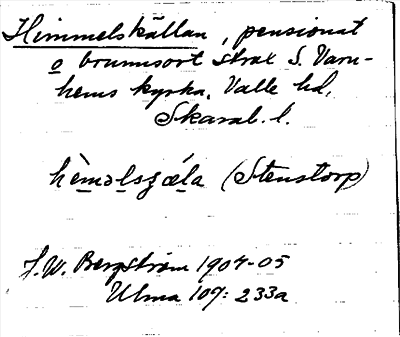 Himmelskällan, pensionat
o brunnsort strax S. Varn-
hems kyrka, Valle hd,
Skarab. l.
hèməlsɟæla (Stenstorp)
J. W. Bergström 1904-05
Ulma 109: 233a